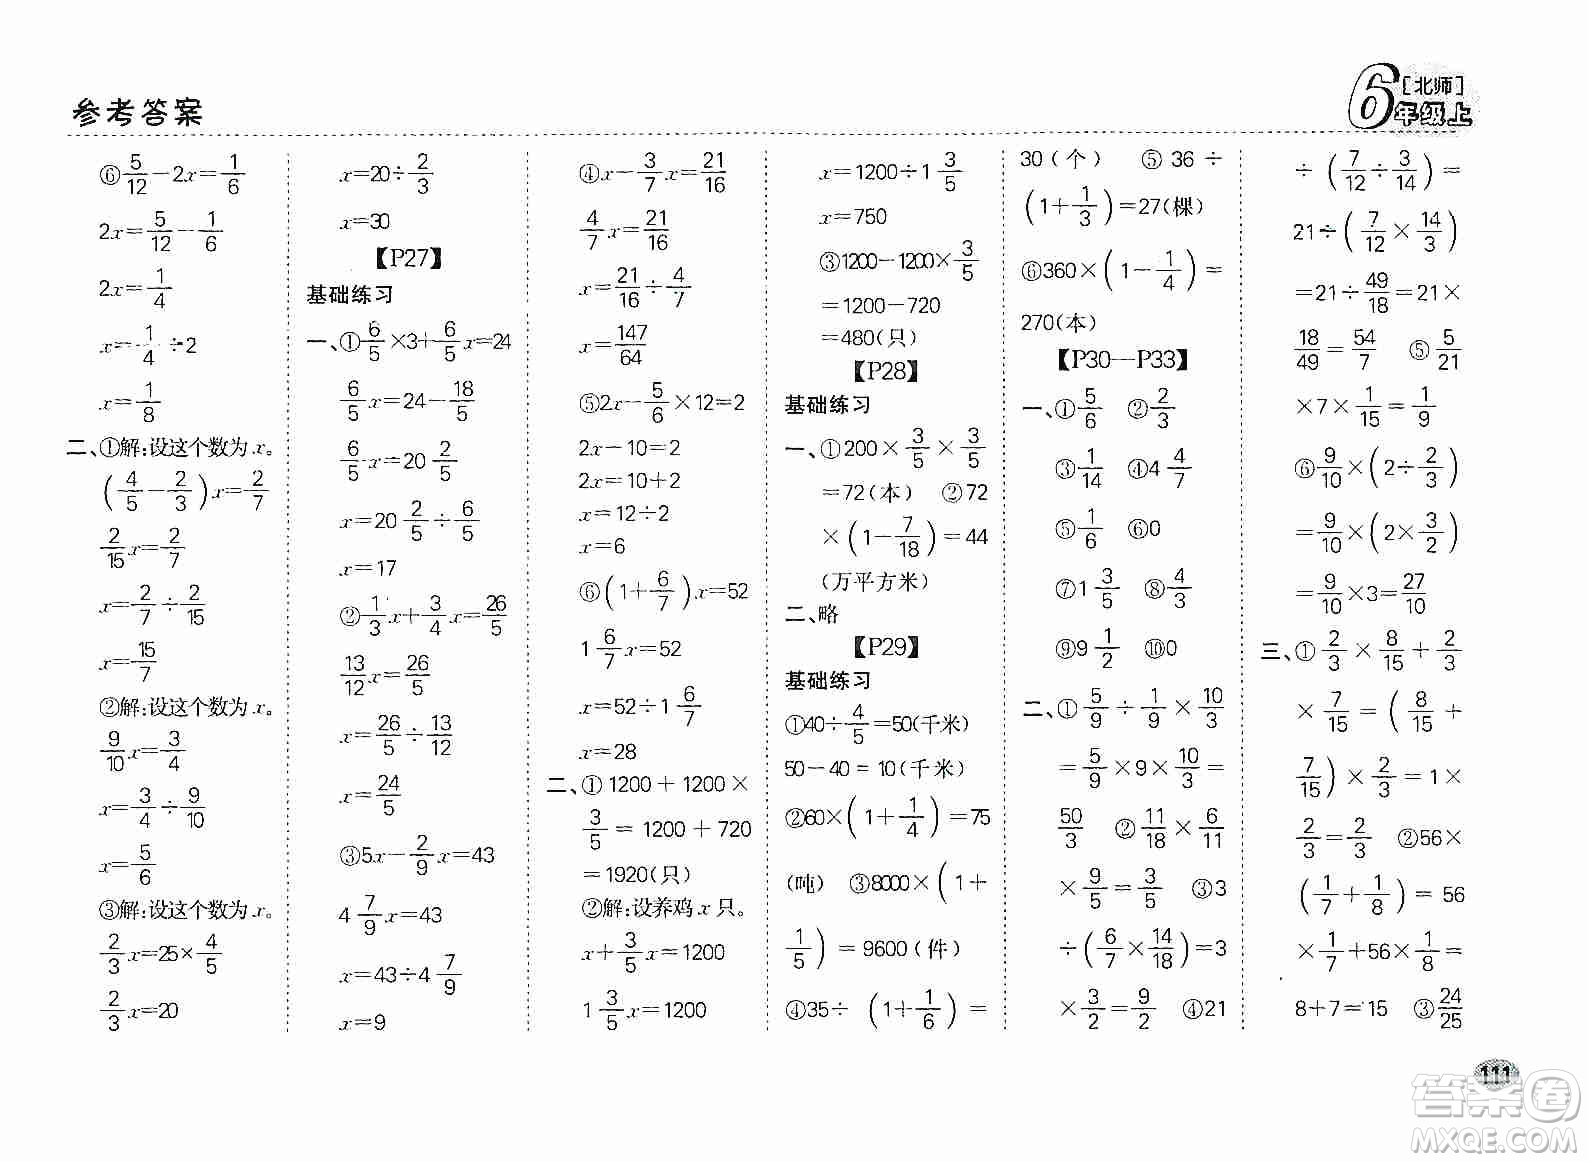 参考答案
6年级上
[北师]
⑥5/12-2x=1/6
2x=5/12-1/6
2x=1/4
x=1/4÷2
x=1/8
二、①解:设这个数为x。
(4/5-2/3)x=2/7
2/15x=2/7
x=2/7÷2/15
x=15/7
②解:设这个数为x。
9/10x=3/4
x=3/4÷9/10
x=5/6
③解:设这个数为x。
2/3x=25×4/5
2/3x=20
x=20÷2/3
x=30
【P27】
基础练习
一、①6/5×3+6/5x=24
6/5x=24-18/5
6/5x=20 2/5
x=20 2/5÷6/5
x=17
②1/3x+3/4x=26/5
13/12x=26/5
x=26/5÷13/12
x=24/5
③5x-2/9x=43
4 7/9x=43
x=43÷4 7/9
x=9
④x-3/7x=21/16
4/7x=21/16
x=21/16÷4/7
x=147/64
⑤2x-5/6×12=2
2x-10=2
2x=10+2
x=12÷2
x=6
⑥(1+6/7)x=52
1 6/7x=52
x=52÷1 6/7
x=28
二、①1200+1200×
3/5=1200+720
=1920(只)
②解:设养鸡x只。
x+3/5x=1200
1 3/5x=1200
x=1200÷1 3/5
x=750
③1200-1200×3/5
=1200-720
=480(只)
【P28】
基础练习
一、①200×3/5×3/5
=72(本) ②72
×(1-7/18)=44
(万平方米)
二、略
【P29】
基础练习
①40÷4/5=50(千米)
50-40=10(千米)
②60×(1+1/4)=75
(吨) ③8000×(1+
1/5)=9600(件)
④35÷(1+1/6)=
30(个) ⑤36÷
(1+1/3)=27(棵)
⑥360×(1-1/4)=
270(本)
【P30—P33】
一、①5/6 ②2/3
③1/14 ④4 4/7
⑤1/6 ⑥0
⑦1 3/5 ⑧4/3
⑨9 1/2 ⑩0
二、①5/9÷1/9×10/3
=5/9×9×10/3=
50/3 ②11/18×6/11
×9/5=3/5 ③3
÷(6/7×14/18)=3
×3/2=9/2 ④21
÷(7/12÷3/14)=
21÷(7/12×14/3)
=21÷49/18=21×
18/49=54/7 ⑤5/21
×7×1/15=1/9
⑥9/10×(2÷2/3)
=9/10×(2×3/2)
=9/10×3=27/10
三、①2/3×8/15+2/3
×7/15=(8/15+
7/15)×2/3=1×
2/3=2/3 ②56×
(1/7+1/8)=56
×1/7+56×1/8=
8+7=15 ③24/25
111
答案圈
MXQE.COM